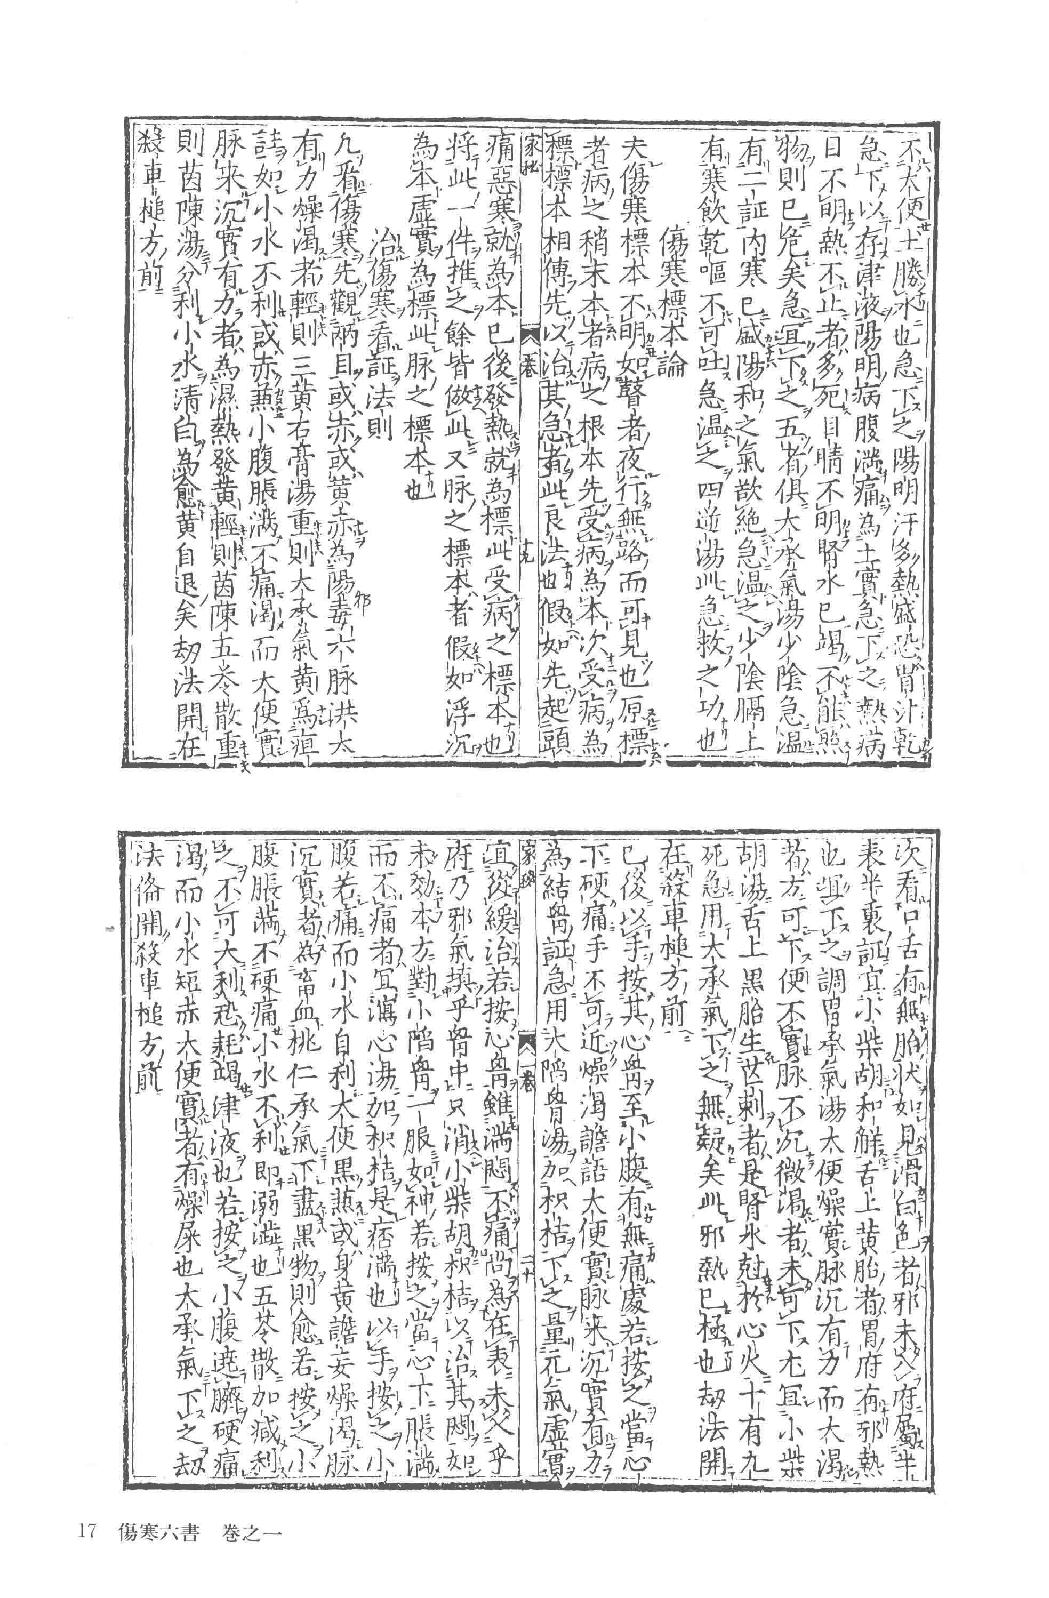 不大便土勝水也急下之陽明汗多熱盛恐胃汁乾
急下以存津液陽明病腹滿痛為土實急下之熱病
目不明熱不止者多死目睛不明腎水已竭不能照
物則已危矣急宜下之五者俱大承氣湯少陰急温
有二証内寒已盛陽和之氣欲絕急温之少陰膈上
有寒飲乾嘔不可吐急温之四逆湯此急救之功也
傷寒標本論
夫傷寒標本不明如瞽者夜行無路而可見也原標
者病之稍末本者病之根本先受病為本次受病為
標標本相傳先以治其急者此良法也假如先起頭
家秘
卷
十九
痛惡寒就為本已後發熱就為標此受病之標本也
將此一件推之餘皆倣此又脉之標本者假如浮沉
為本虛實為標此脉之標本也
治傷寒看証法則
凢看傷寒先觀兩目或赤或黄赤為陽毒六脉洪大
有力燥渴者輕則三黄石膏湯重則大承氣黄為疸
証如小水不利或赤兼小腹脹滿不痛渴而大便實
脉来沉實有力者為濕熱發黄輕則茵陳五苓散重
則茵陳湯分利小水清白為愈黄自退矣刼法開在
殺車槌方前
次看口舌有無胎狀如見滑白色者邪未入府屬半
表半裏証宜小柴胡和解舌上黄胎者胃府有邪熱
也宜下之調胃承氣湯大便燥實脉沉有力而大渴
者方可下便不實脉不沉微渴者未可下尤宜小柴
胡湯舌上黒胎生芒刺者是腎水尅於心火十有九
死急用大承氣下之無疑矣此邪熱已極也刼法開
在殺車槌方前
已後以手按其心胷至小腹有無痛處若按之當心
下硬痛手不可近燥渴譫語大便實脉来沉實有力
為結胷証急用大陷胷湯加枳桔下之量元氣虛實
家秘
一卷
二十
宜從緩治若按心胷雖滿悶不痛尚為在表未入乎
府乃邪氣填乎胷中只消小柴胡枳桔以治其悶如
未効本方對小陷胷一服如神若按之當心下脹滿
而不痛者宜瀉心湯加枳桔是痞滿也以手按之小
腹若痛而小水自利大便黒兼或身黄譫妄燥渴脉
沉實者為畜血桃仁承氣下盡黒物則愈若按之小
腹脹滿不硬痛小水不利即溺澁也五苓散加减利
之不可大利恐耗竭津液也若按之小腹遶臍硬痛
渴而小水短赤大便實者有燥屎也大承氣下之刼
法俻開殺車槌方前
17 傷寒六書 卷之一